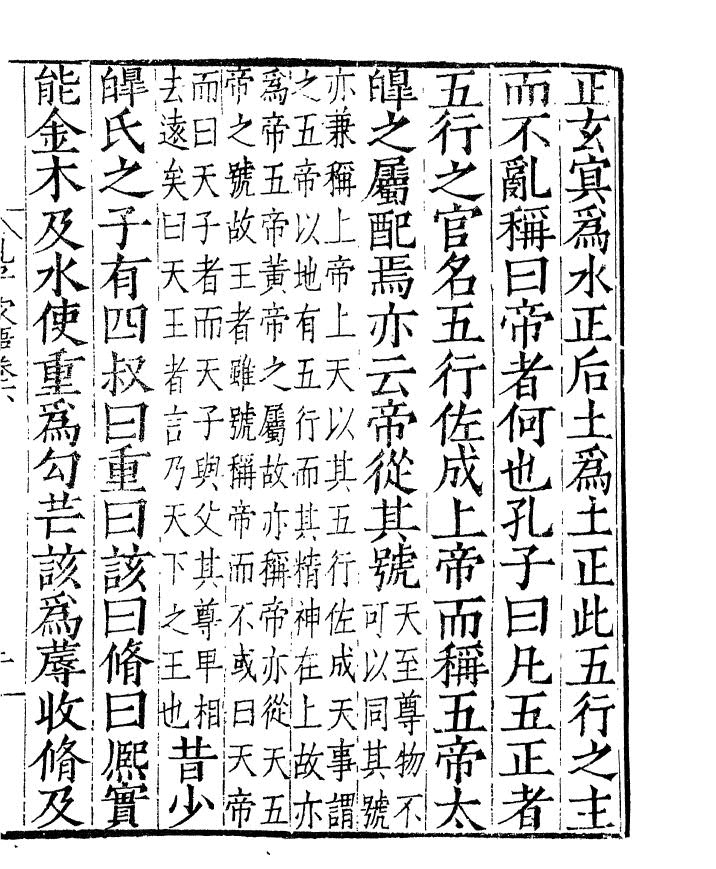 正玄㝠爲水正后土爲土正此五行之主
而不亂稱曰帝者何也孔子曰凡五正者
五行之官名五行佐成上帝而稱五帝太
皥之屬配焉亦云帝從其號
天至尊物不
可以同其號
亦兼稱上帝上天以其五行佐成天事謂
之五帝以地有五行而其精神在上故亦
爲帝五帝黃帝之屬故亦稱帝亦從天五
帝之號故王者雖號稱帝而不或曰天帝
而曰天子者而天子與父其尊卑相
去遠矣曰天王者言乃天下之王也
昔少
皥氏之子有四叔曰重曰該曰脩曰熈實
能金木及水使重爲勾芒該爲蓐收脩及